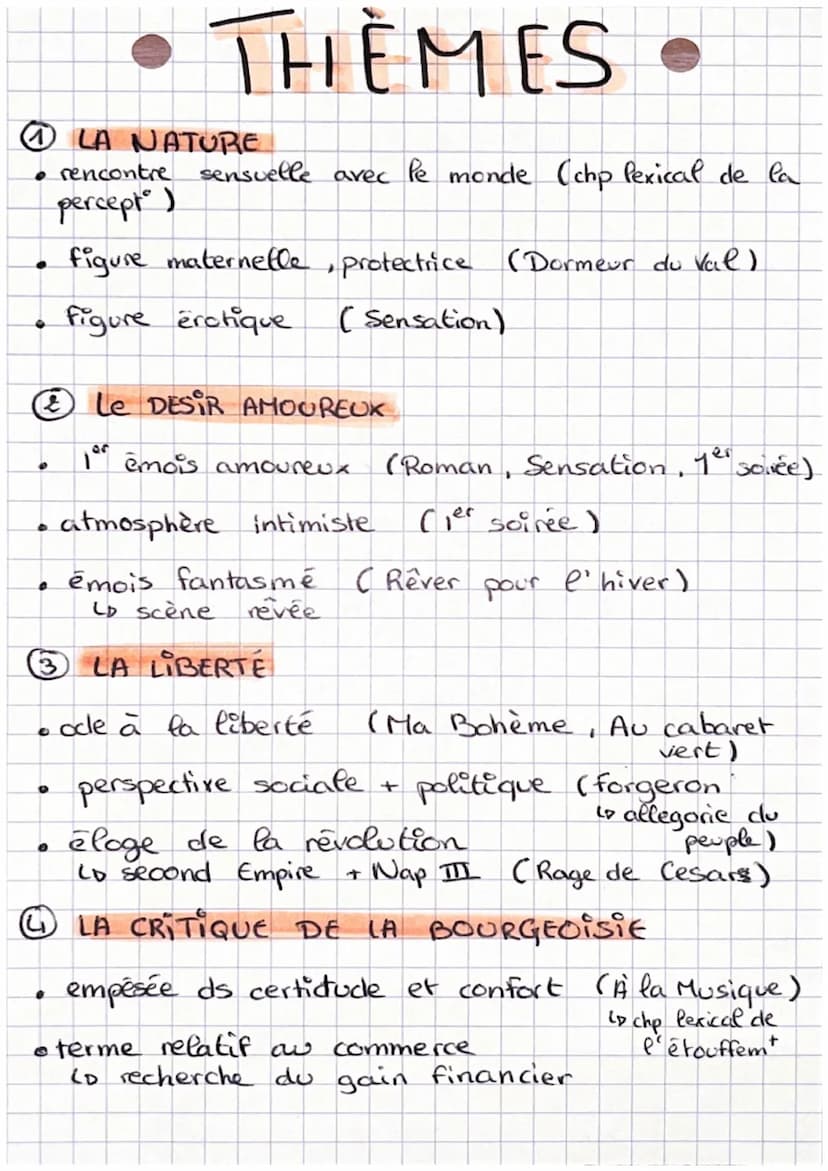 • THÈMES •
① LA NATURE
• rencontre sensuelle avec le monde (chp lexical de la
percept° )
• figure maternelle , protectrice (Dormeur du Val)
• figure érotique ( Sensation)
② Le DESIR AMOUREUX
• 1er émois amoureux (Roman, Sensation, 1er soirée)
• atmosphère intimiste (1er soirée )
• émois fantasmé ( Rêver pour l'hiver)
↳ scène rêvée
③ LA LIBERTÉ
• ode à la liberté (Ma Bohème, Au cabaret
vert)
• perspective sociale + politique (forgeron
↳ allegorie du
peuple)
• éloge de la révolution
↳ second Empire + Nap III (Rage de Cesars)
④ LA CRITIQUE DE LA BOURGEOISIE
• empésée ds certidude et confort (À la Musique)
↳ chp lexical de
l'étouffemt
• terme relatif au commerce
↳ recherche du gain financier